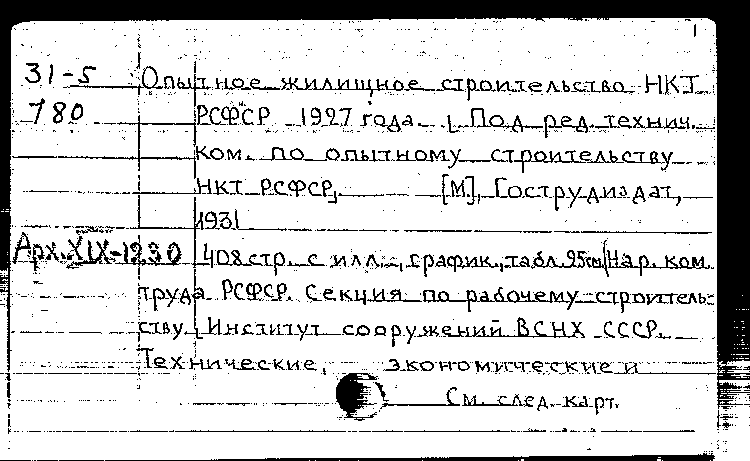 1
31-5 Опытное жилищное строительство НКТ
780 РСФСР 1927 года. Под ред. технич.
ком. по опытному строительству
НКТ РСФСР. [М], Гострудиздат,
1931
Арх.XIX-1230 408 стр. с илл., график., табл. 25см (Нар. ком.
труда РСФСР. Секция по рабочему строитель-
ству. Институт сооружений ВСНХ СССР.
Технические, экономические и
См. след. карт.